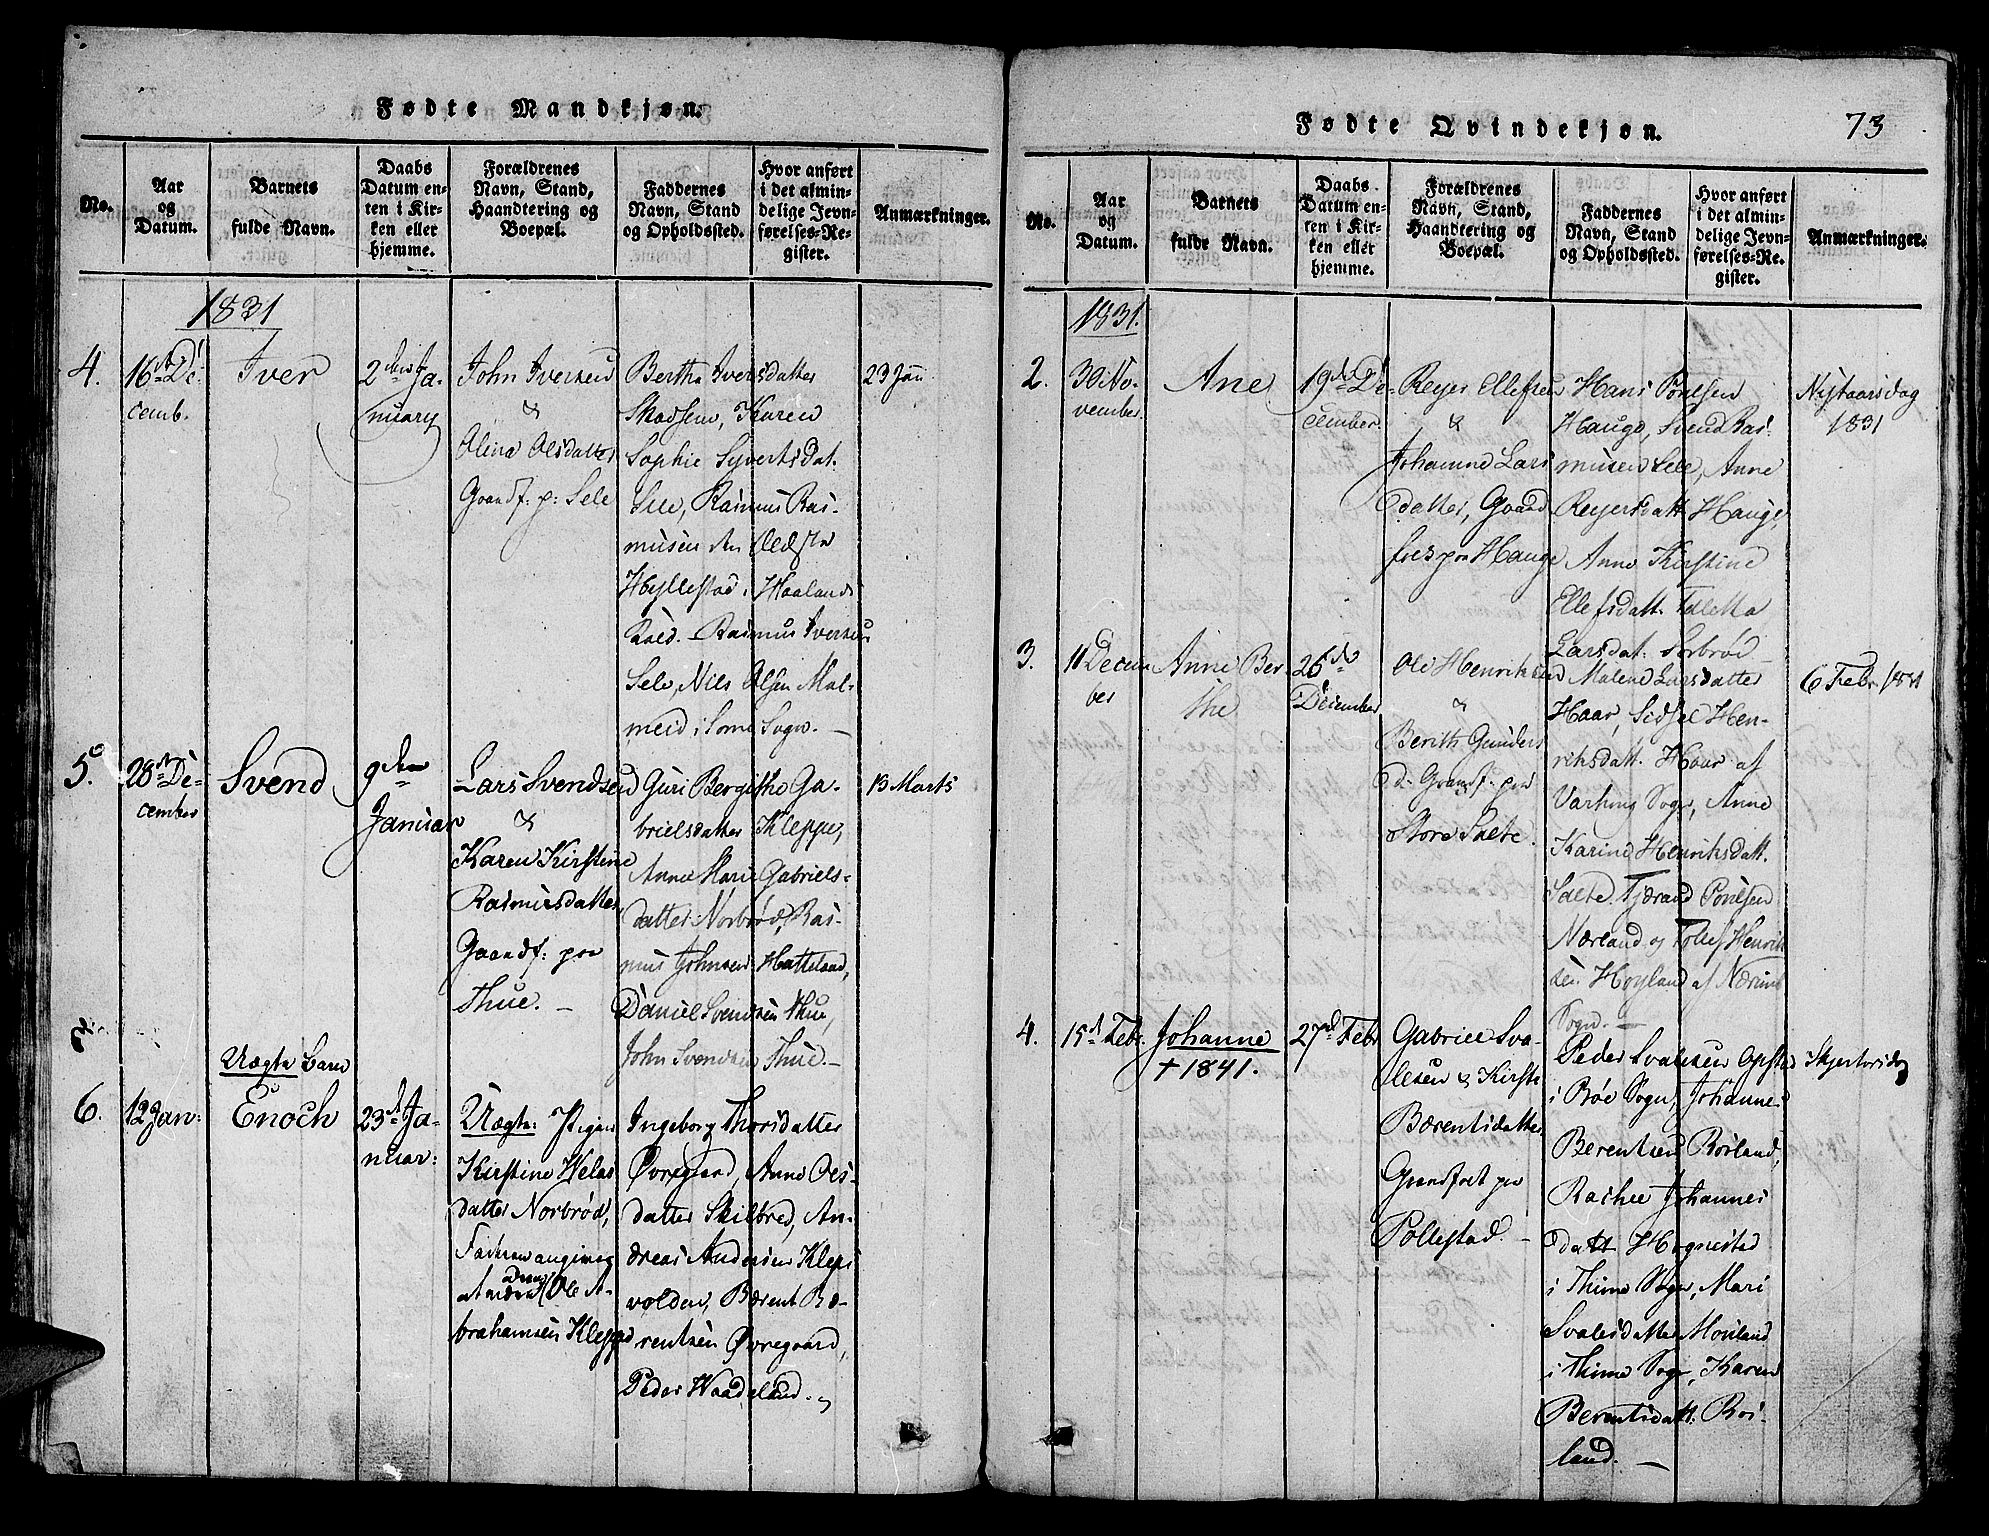 Fødte Mandkjøn.
No.
Aar
og
Datum.
Barnets
fulde Navn.
Daabs
Datum en-
ten i Kir-
ken eller
hjemme.
Forældrenes
Navn, Stand,
Haandtering og
Boepæl.
Faddernes
Navn, Stand
og Opholdssted.
Hvor anført
i det almin-
delige Jevn-
førelses-Re-
gister.
Anmærkninger.
1831
4.
16de De-
cemb.
Iver
2den Ja-
nuary
John Iversen
&
Olina Olsdatter
Gaardf: p: Sele
Bertha Iversdatter
Skadsem, Karen
Sophie Syvertsdat.
Sele, Rasmus Ras-
musen den Ældste
Hyllestad i Haalands
Præd. - Rasmus Iversen
Sele, Nils Olsen Mal-
meid i Some Sogn. -
23 Jan
5.
28de De-
cember
Svend
9den
Januar
Lars Svendsen
&
Karen Kirstine
Rasmusdatter,
Gaardf: paa
Thue. -
Guri Bergithe Ga-
brielsdatter Kleppe,
Anne Marie Gabriels-
datter Norbrød, Ras-
mus Johnsen Hatteland,
Daniel Svendsen Thue,
John Svendsen Thue. -
13 Marts
6.
12 Jan:
Uægte Barn
Enoch
23de Ja-
nuar:
Uægte: Pigen
Kirstine Helas
datter Norbrød,
Faderen angives
at være Ole A-
brahamsen Kleppe
Ingeborg Thorsdatter
Øvregaard, Anne Ols-
datter Skilbred, An-
dreas Andersen Klep
volden, Bærent Bæ-
rentsen Øvregaard,
Peder Waadeland.
Fødte Qvindekjøn.
73
No.
Aar
og
Datum.
Barnets
fulde Navn.
Daabs
Datum en-
ten i Kir-
ken eller
hjemme.
Forældrenes
Navn, Stand,
Haandtering og
Boepæl.
Faddernes
Navn, Stand
og Opholdssted.
Hvor anført
i det almin-
delige Jevn-
førelses-Re-
gister.
Anmærkninger.
1831.
2.
30 No-
vember
Ane
19de De-
cember.
Reyer Ellefsen
&
Johanne Lars
datter, Gaard
folk paa Hauge
Hans Poulsen
Hauge, Svend Ras-
musen Sele, Anne
Reyersdatt. Hauge,
Anne Kirstine
Ellefsdatt. Tolletta
Larsdat: Sorbrød -
Nystaarsdag
1831
3.
11 Decem
ber
Anne Ber-
the
26de
December
Ole Henriksen
&
Berith Gunders
d: Gaardf. paa
Store Salte.
Malene Larsdatter
Haar, Sidsel Hen-
riksdatt. Haar af
Varhoug Sogn, Anne
Karine Henriksdatt.
Salte, Tjærand Poulsen
Nærland og Tollef Henrik
sen Høyland af Nærim
Sogn. -
6 Febr. 1831
4.
15de Febr.
Johanne
+ 1841.
27de Febr
Gabriel Sva-
lesen & Kirste
Bærentsdatter
Gaardfolk paa
Pollestad. -
Peder Svalesen Opstad
i Bøe Sogn, Johannes
Berentsen Rosland,
Rachel Johannes
datt Hognestad
i Thime Sogn, Mari
Svalesdatter Mosland
i Thime Sogn, Karen
Berentsdatt. Ros-
land. -
Skjertorsdag